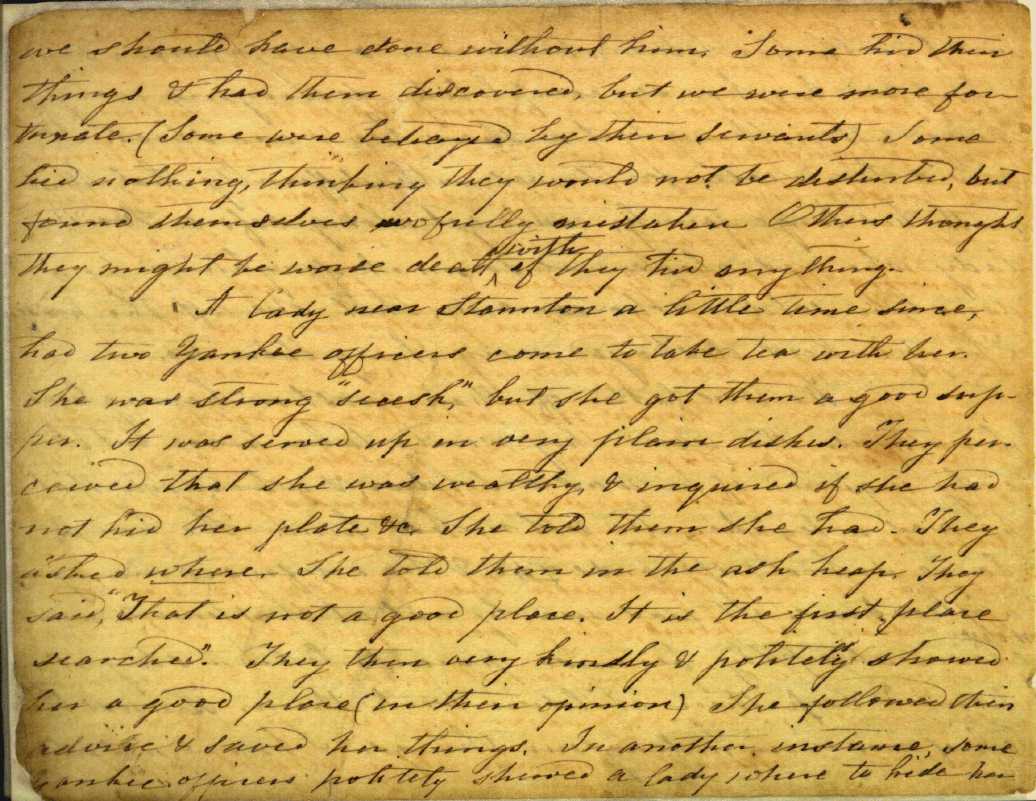 we should have done without him. Some hid their
things & had them discovered, but we were more for-
tunate. (Some were betrayed by their servants) Some
hid nothing, thinking they would not be disturbed, but
found themselves wofully mistaken Others thought
they might be worse dealt with if they hid anything.
A lady near Staunton a little time since,
had two Yankee officers come to take tea with her.
She was strong "secesh," but she got them a good sup-
per. It was served up in very plain dishes. They per-
ceived that she was wealthy, & inquired if she had
not hid her plate &c. She told them she had. They
asked where. She told them in the ash heap. They
said, "That is not a good place. It is the first place
searched". They then very kindly & politely showed
her a good place (in their opinion) She followed their
advice & saved her things. In another instance, some
Yankee officers politely showed a lady where to hide her